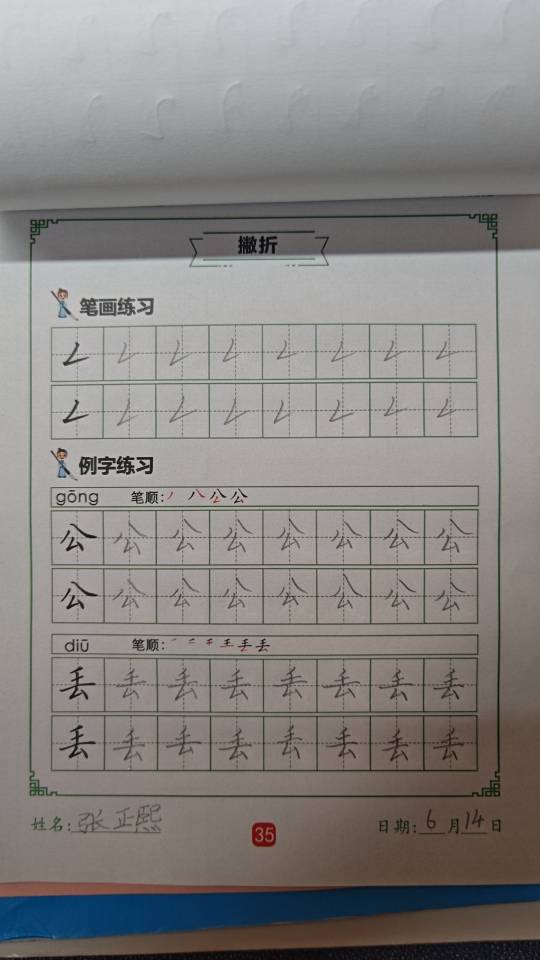 撇折
笔画练习
例字练习
gōng 笔顺: 丿 八 公 公
公 公 公 公 公 公 公 公
公 公 公 公 公 公 公 公
diū 笔顺: 一 二 千 王 丢 丢
丢 丢 丢 丢 丢 丢 丢 丢
丢 丢 丢 丢 丢 丢 丢 丢
姓名: 张正熙 35 日期: 6 月 14 日